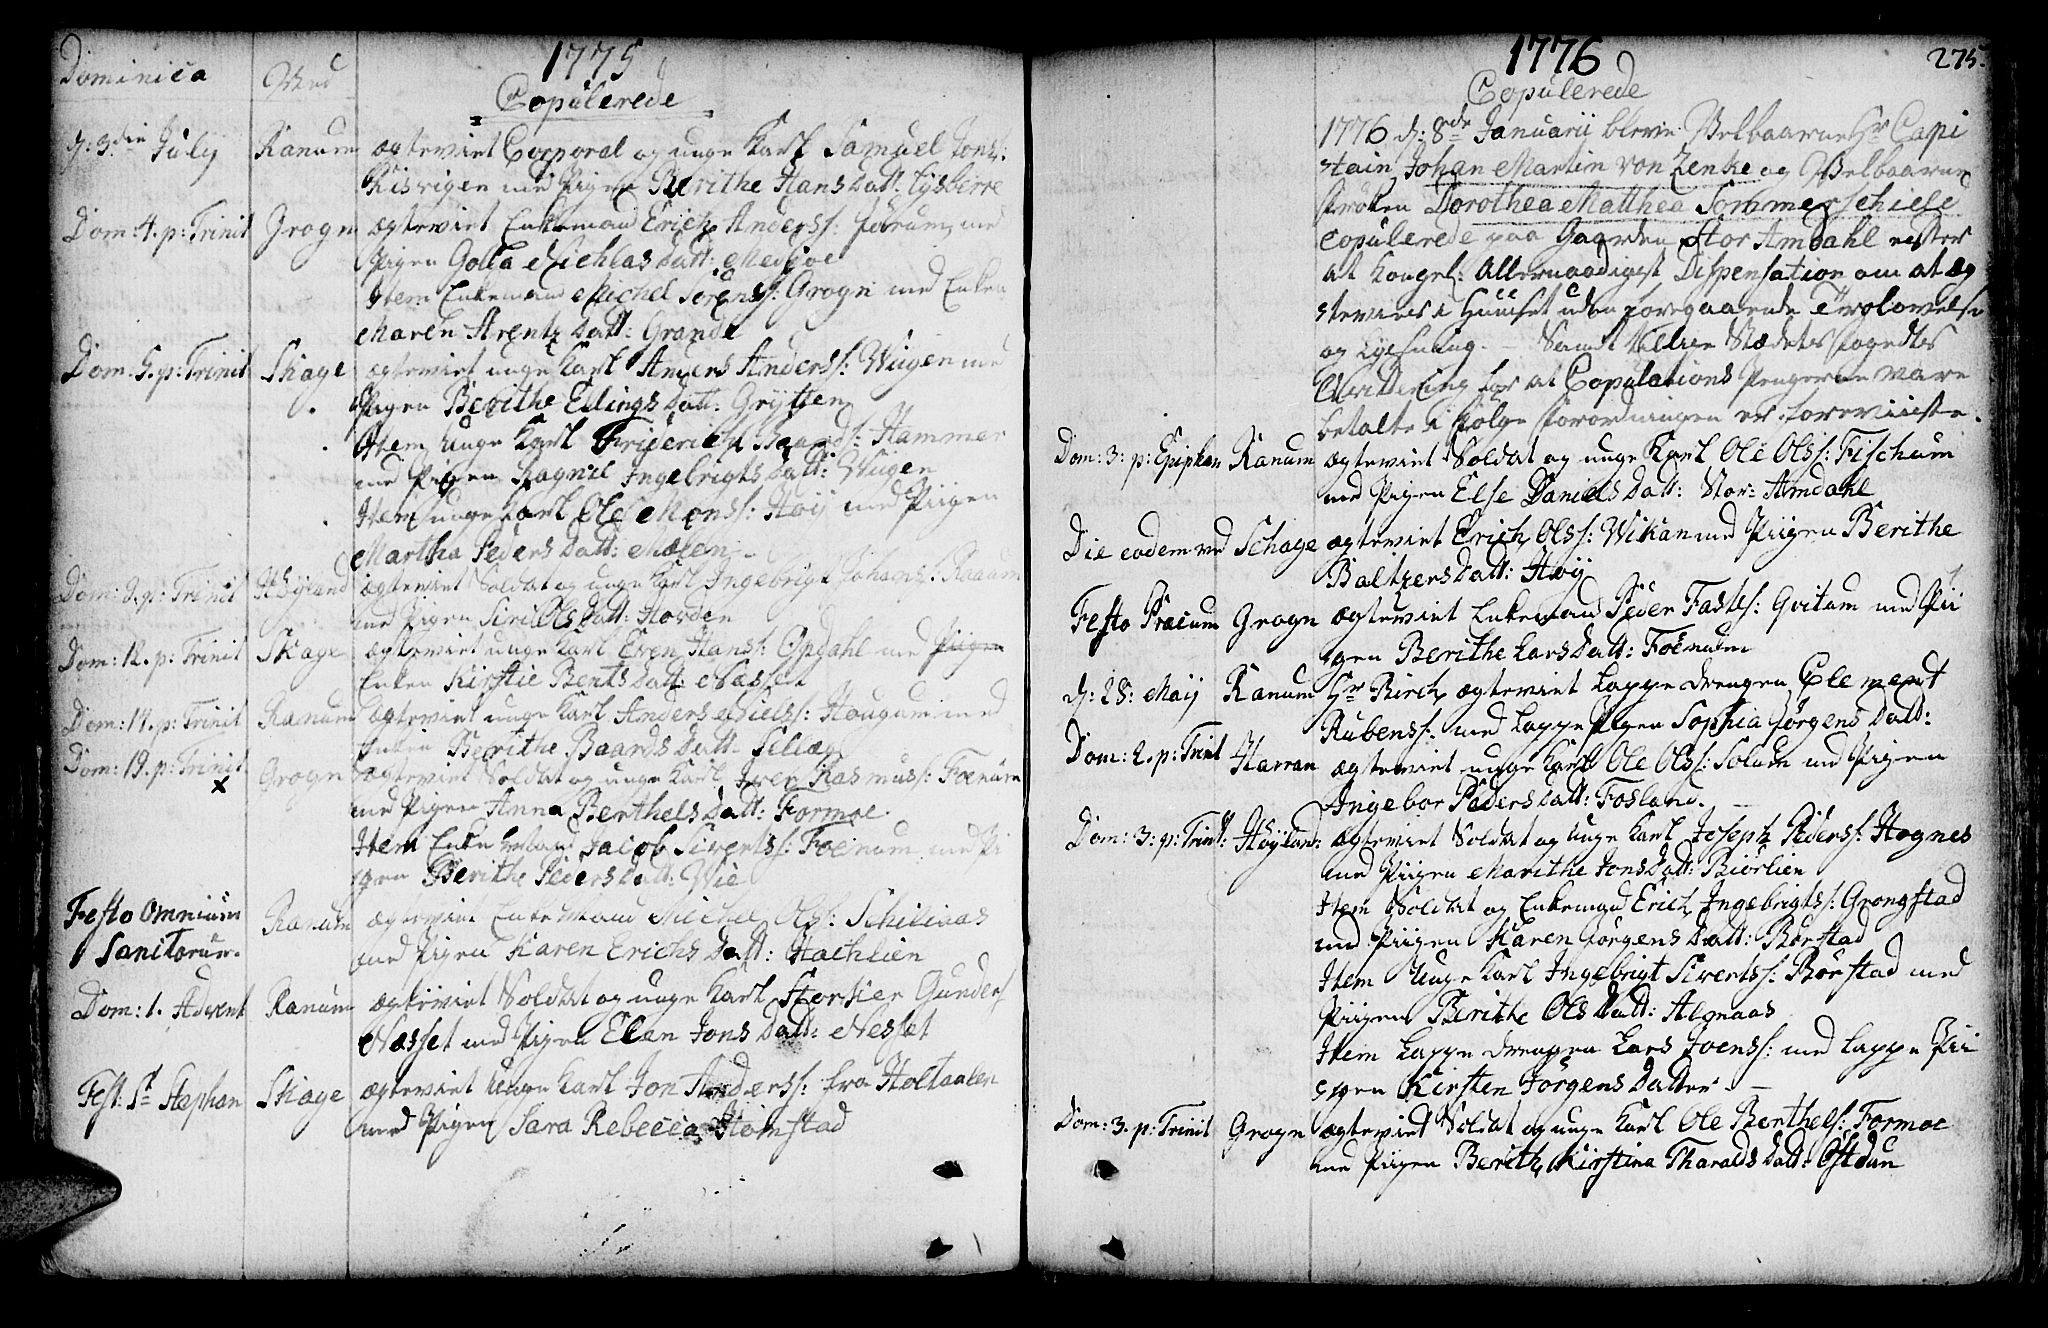 Dominica Ved 1775
Copulerede
d: 3die July Ranum ægteviet Corporal og unge Karl Samuel Jons:
med Pigen Berithe Hans Datt:
Dom: 4. p: Trinit Grogn ægteviet Enkemand Erich Anderss: med
Pigen Golla Nichlas Datt: Medioe
Item Enkemand Michel Sörenss: Grogn med Enken
Maren Arentz Datt: Grande
Dom. 5. p: Trinit Skage ægteviet unge Karl Anders Anderss: Wiigen med
Pigen Berithe Ellings Datt: Gryttem
Item unge Karl Friderich Baards: Hammer
med Pigen Ragnil Ingebrigts Datt: Wiigen
Item unge Karl Ole Monss: Høy med Piigen
Martha Peders Datt: Mælen
Dom: p: Trinit Höyland ægteviet Soldat og unge Karl Ingebrigt Johans:
med Pigen Siri Ols Datt: Horden
Dom: 12. p: Trinit Skage ægteviet unge Karl Even Hans: Opdahl med Pigen
Enken Kirstie Bents Datt: Næsset
Dom: 14. p: Trinit Ranum ægteviet unge Karl Anders Nielss: Hougum med
Enken Berithe Baards Datt: Seliæg
Dom: 19. p: Trinit Grogn ægteviet Soldat og unge Karl Iver Rasmuss: Foenum
x med Pigen Anna Berthels Datt: Formoe
Item Enkemand Jacob Sivertss: Foenum med Pi
gen Berithe Peders Datt: Wie
Festo Omnium Ranum ægteviet Enkemand Michel Ols:
Sanctorum. med Pigen Karen Erichs Datt: Hachlien
Dom: 1. Advent Ranum ægteviet Soldat og unge Karl Gunders
Næsset med Pigen Elen Jons Datt: Nesset
Fest: St Stephan Skage ægteviet unge Karl Jon Anderss: fra Holtaalen
med Pigen Sara Rebecca Heimstad
1776 275.
Copulerede
1776 d: 8de Januarii bleve Velbaarne Hr Capi
stain Johan Martin von Zenke og Velbaarne
Fröken Dorothea Matthea Sommerschield
copulerede paa Gaarden Stor Amdahl efter
at Kongel: Allernaadigst Dispensation om at æg
stevies i Huuset uden foregaaende Trolovelse
og Lysning. – Samt Stædets Fogedes
Qvittering for at Copulations Pengene vare
betalte i følge Forordningen er foreviiste.
Dom: 3: p: Epiphan Ranum ægteviet Soldat og unge Karl Ole Olss: Fischum
med Pigen Else Daniels Datt: Stor: Amdahl
Die eodem ved Schage ægteviet Erich Olss: Wikan med Piigen Berithe
Baltzers Datt: Høy
Festo Præcum Grogn ægteviet Enkemand Peder Fastes: Gvitum med Pii
gen Berithe Lars Datt: Foenum
d: 28: Maij Ranum Hr Birch ægteviet Lappe Drengen Clement
Rubenss: med Lappe Pigen Sophia Jørgens Datt:
Dom: 2. p: Trinit Harran ægteviet unge Karl Ole Olss: Solum med Pigen
Ingebor Peders Datt: Fosland.
Dom: 3: p: Trinit: Höyland: ægteviet Soldat og unge Karl Joseph Peders: Hognes
med Piigen Marithe Jons Datt: Biörlien
Item Soldat og Enkemand Erich Ingebrigts: Grongstad
med Piigen Karen Jørgens Datt: Börstad
Item Unge Karl Ingebrigt Sivertss: Börstad med
Piigen Berithe Ols Datt: Alsnaas
Item Lappe Drengen Lars Joenss: med Lappe Pii
gen Kirsten Jörgens Datter –
Dom: 3. p: Trinit Grogn ægteviet Soldat og unge Karl Ole Berthels: Formoe
med Piigen Berith Kirstina Tharalds Datt: Östdun